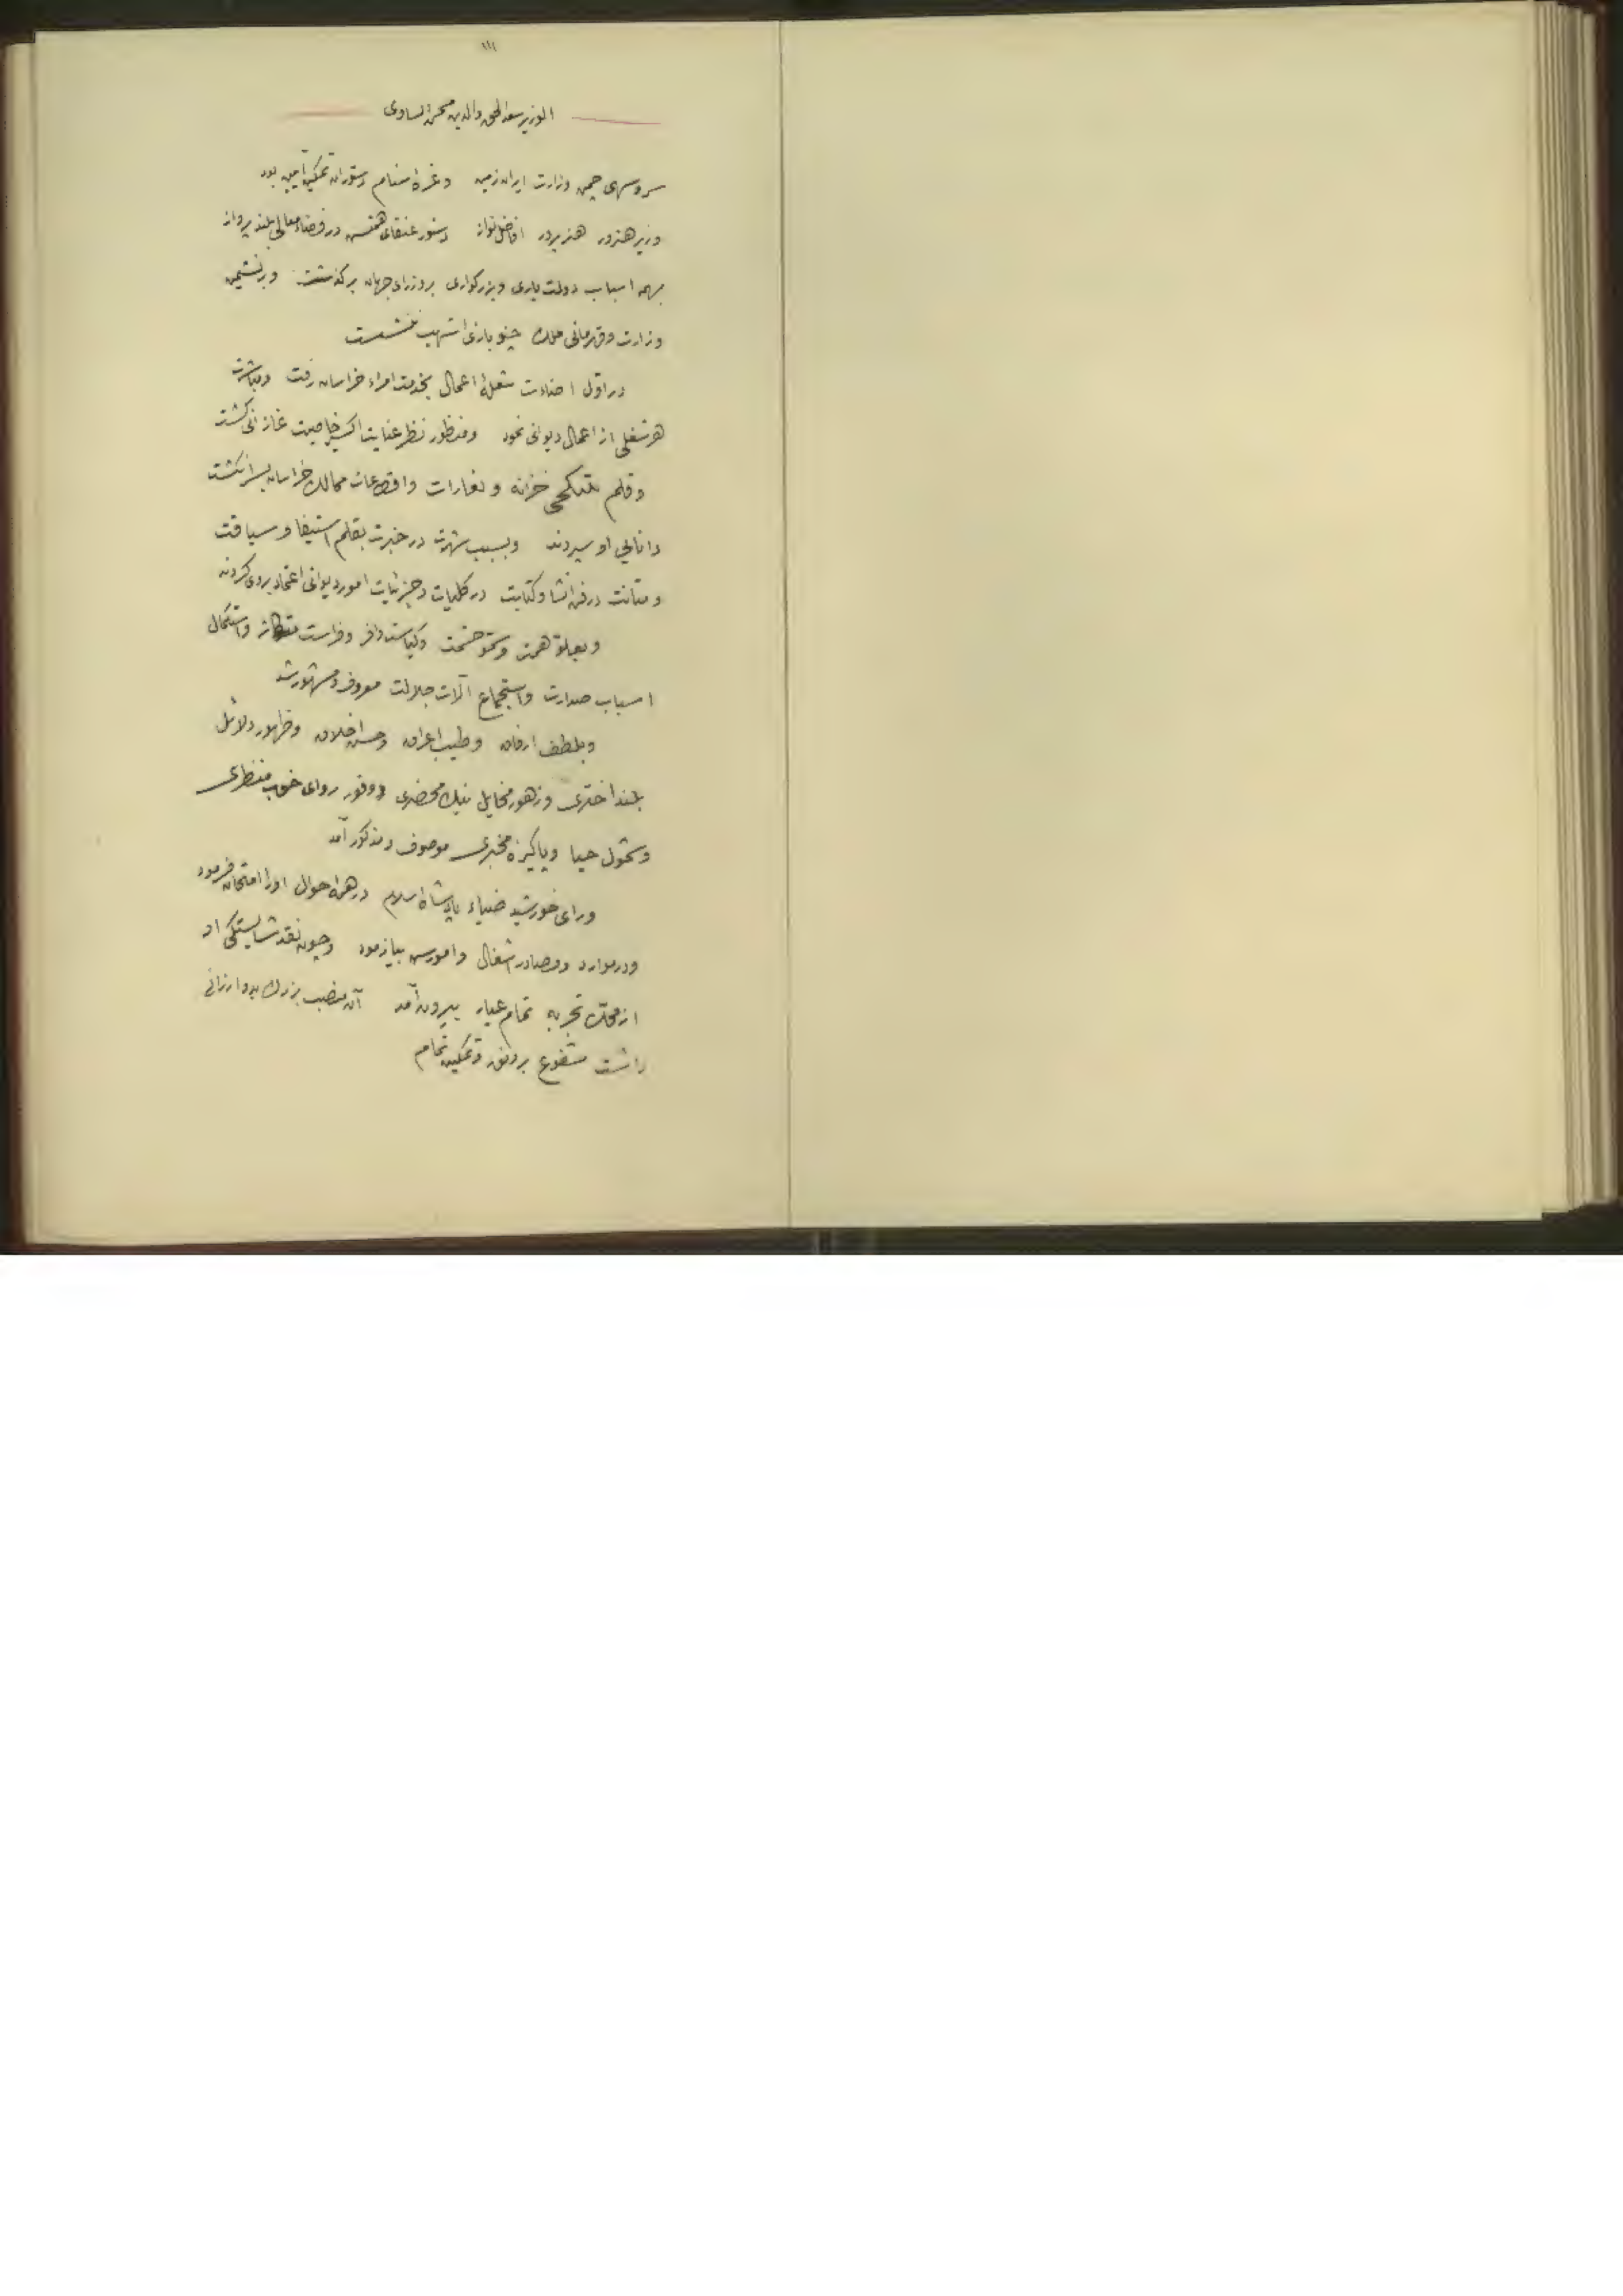 ۱۱۱
الوزیر سعد الحق والدین محمد الساوی
سرو سهی چمن وزارت ایران زمین و غرهٔ دستوران تمکین آیین بود
وزیر هنرور هنرپرور افاضل نواز دستور عنقای همتش در فضاء معالی بلند پرواز
بهمه اسباب دولت یاری و بزرگواری بر وزرای جهان برگذشت و بر نشیمن
وزارت و قهرمانی ملک چنو بازی اشهب ننشست
در اول اضاءت شعلهٔ اعمال بخدمت امراء خراسان رفت و مباشرت
هر شغلی از اعمال دیوانی نمود و منظور نظر عنایت اکسیر خاصیت غازانی گشت
و قلم بتکچی خزانه و تغارات و اقطاعات ممالک خراسان بسر انگشت
دانایی او سپردند و بسبب شهرت در خبرت بقلم استیفا و سیاقت
و متانت در فن انشا و کتابت در کلیات و جزئیات امور دیوانی اعتماد بر وی کردند
و بعلو همت و سمو حشمت و کیاست وافر و فراست و استکمال
اسباب صدارت و استجماع آلات جلالت معروف و مشهور شد
و بلطف ارفاق و طیب اعراق و حسن اخلاق و ظهور دلائل
بلند اختری و زهور مخایل نیک محضری و وفور روای خوب منظری
و شمول حیا و پاکیزه مخبری موصوف و مذکور آمد
و رای خورشید ضیاء پادشاه اسلام در همه احوال او را امتحان فرمود
و در موارد و مصادر اشغال و امورش بیازمود و چون نقد شایستگی او
از محک تجربه تمام عیار بیرون آمد آن منصب بزرگ بدو ارزانی
داشت مشفوع برونق و تمکین تمام